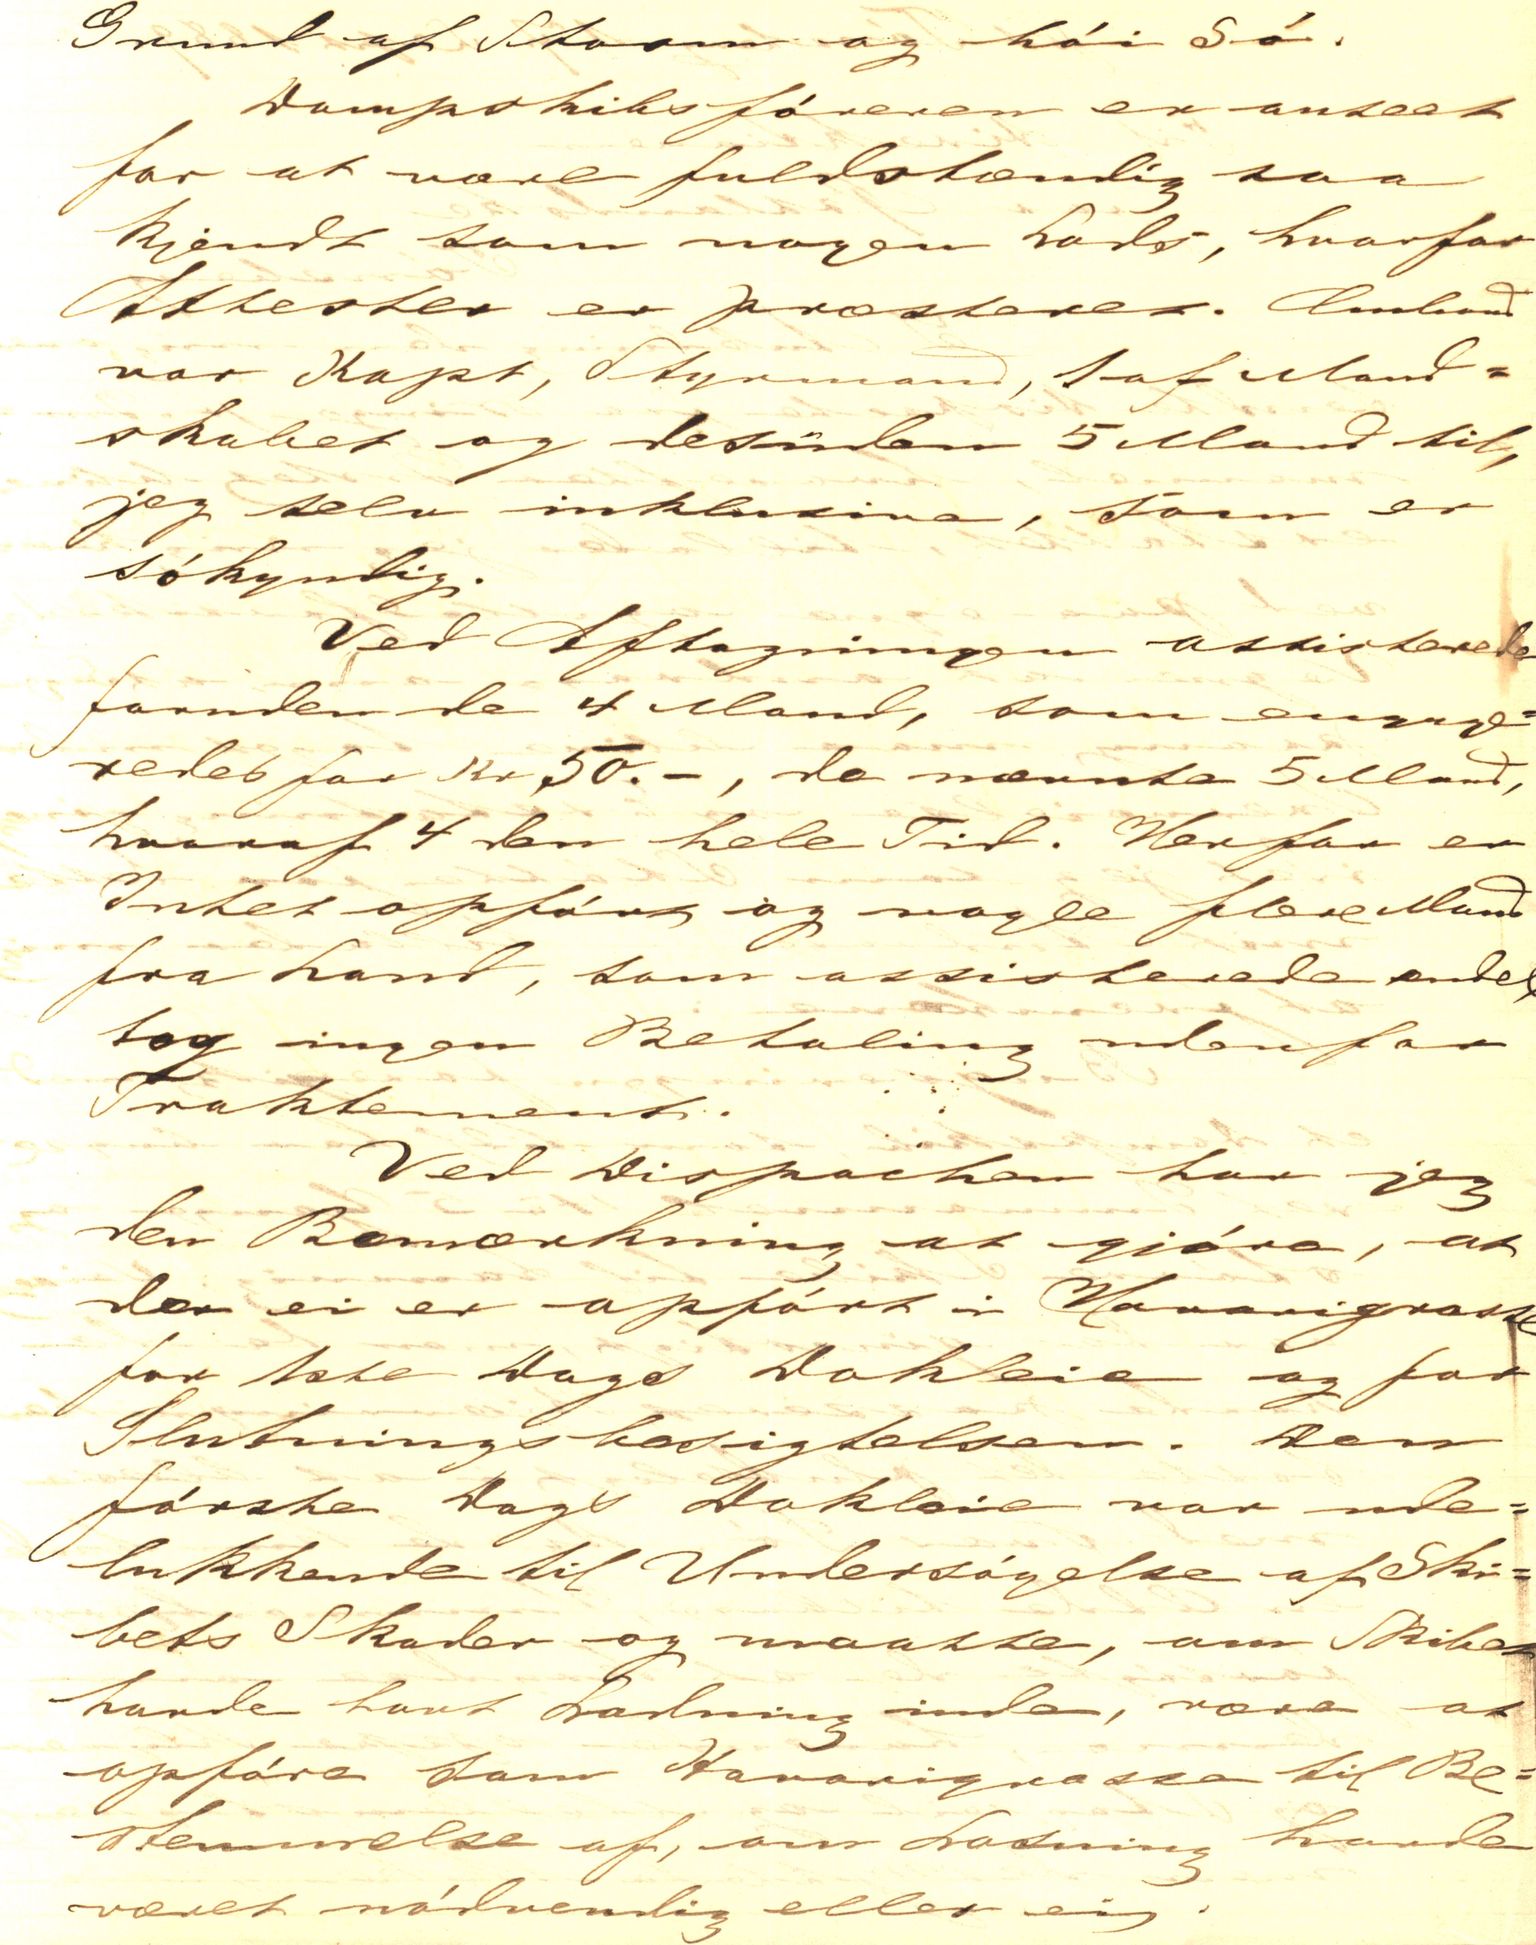 Grund af Storm og hói Só.
Dampskibsfóreren er anseet
for at være fuldstændig saa
kjendt som nogen Lods, hvorfor
Attester er præsteret. Ombord
var Kapt, Styrmand, 1 af Mand=
skabet og desuden 5 Mand til,
jeg selv inklusive, som er
sókyndig.
Ved Aftagningen assisterede
foruden de 4 Mand, som engage=
redes for Kr 50.-, de nævnte 5 Mand,
hvoraf 4 den hele Tid. Herfor er
Intet opfórt og nogle flere Mand
fra Land, som assisterede endel,
tog ingen Betaling udenfor
Traktement.
Ved Dispachen har jeg
den Bemærkning at gjóre, at
der ei er opfórt i Havarigrosse
for 1ste Dags Dokleie og for
Slutningsbesigtelsen. Den
fórste Dags Dokleie var ude=
lukkende til Undersógelse af Ski=
bets Skader og maatte, om Skibet
havde havt Ladning inde, være at
opfóre som Havarigrosse til Be=
stemmelse af, om Losning havde
været nódvendig eller ei.